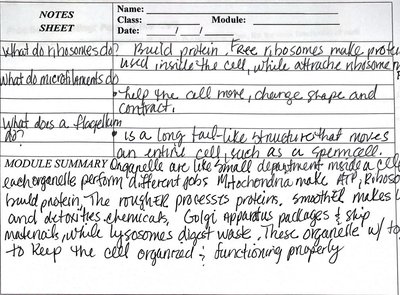 NOTES SHEET
Name:
Class: Module:
Date: / /
What do ribosomes do? Build protein. Free ribosomes make protei
used inside the cell, while attache ribosome
What do microfilaments do
• help the cell move, change shape and
contract.
What does a flagellum
do? • is a long tail-like structure that moves
an entire cell, such as a sperm cell.
MODULE SUMMARY Organelle are like small department inside a cell
each organelle perform different jobs Mitochondria make ATP, Riboso
build protein. The rough ER processes proteins. smooth ER makes l
and detoxifies chemicals, Golgi Apparatus packages & ship
materials, while lysosomes digest waste. These organelle w/ to
to keep the cell organized & functioning properly